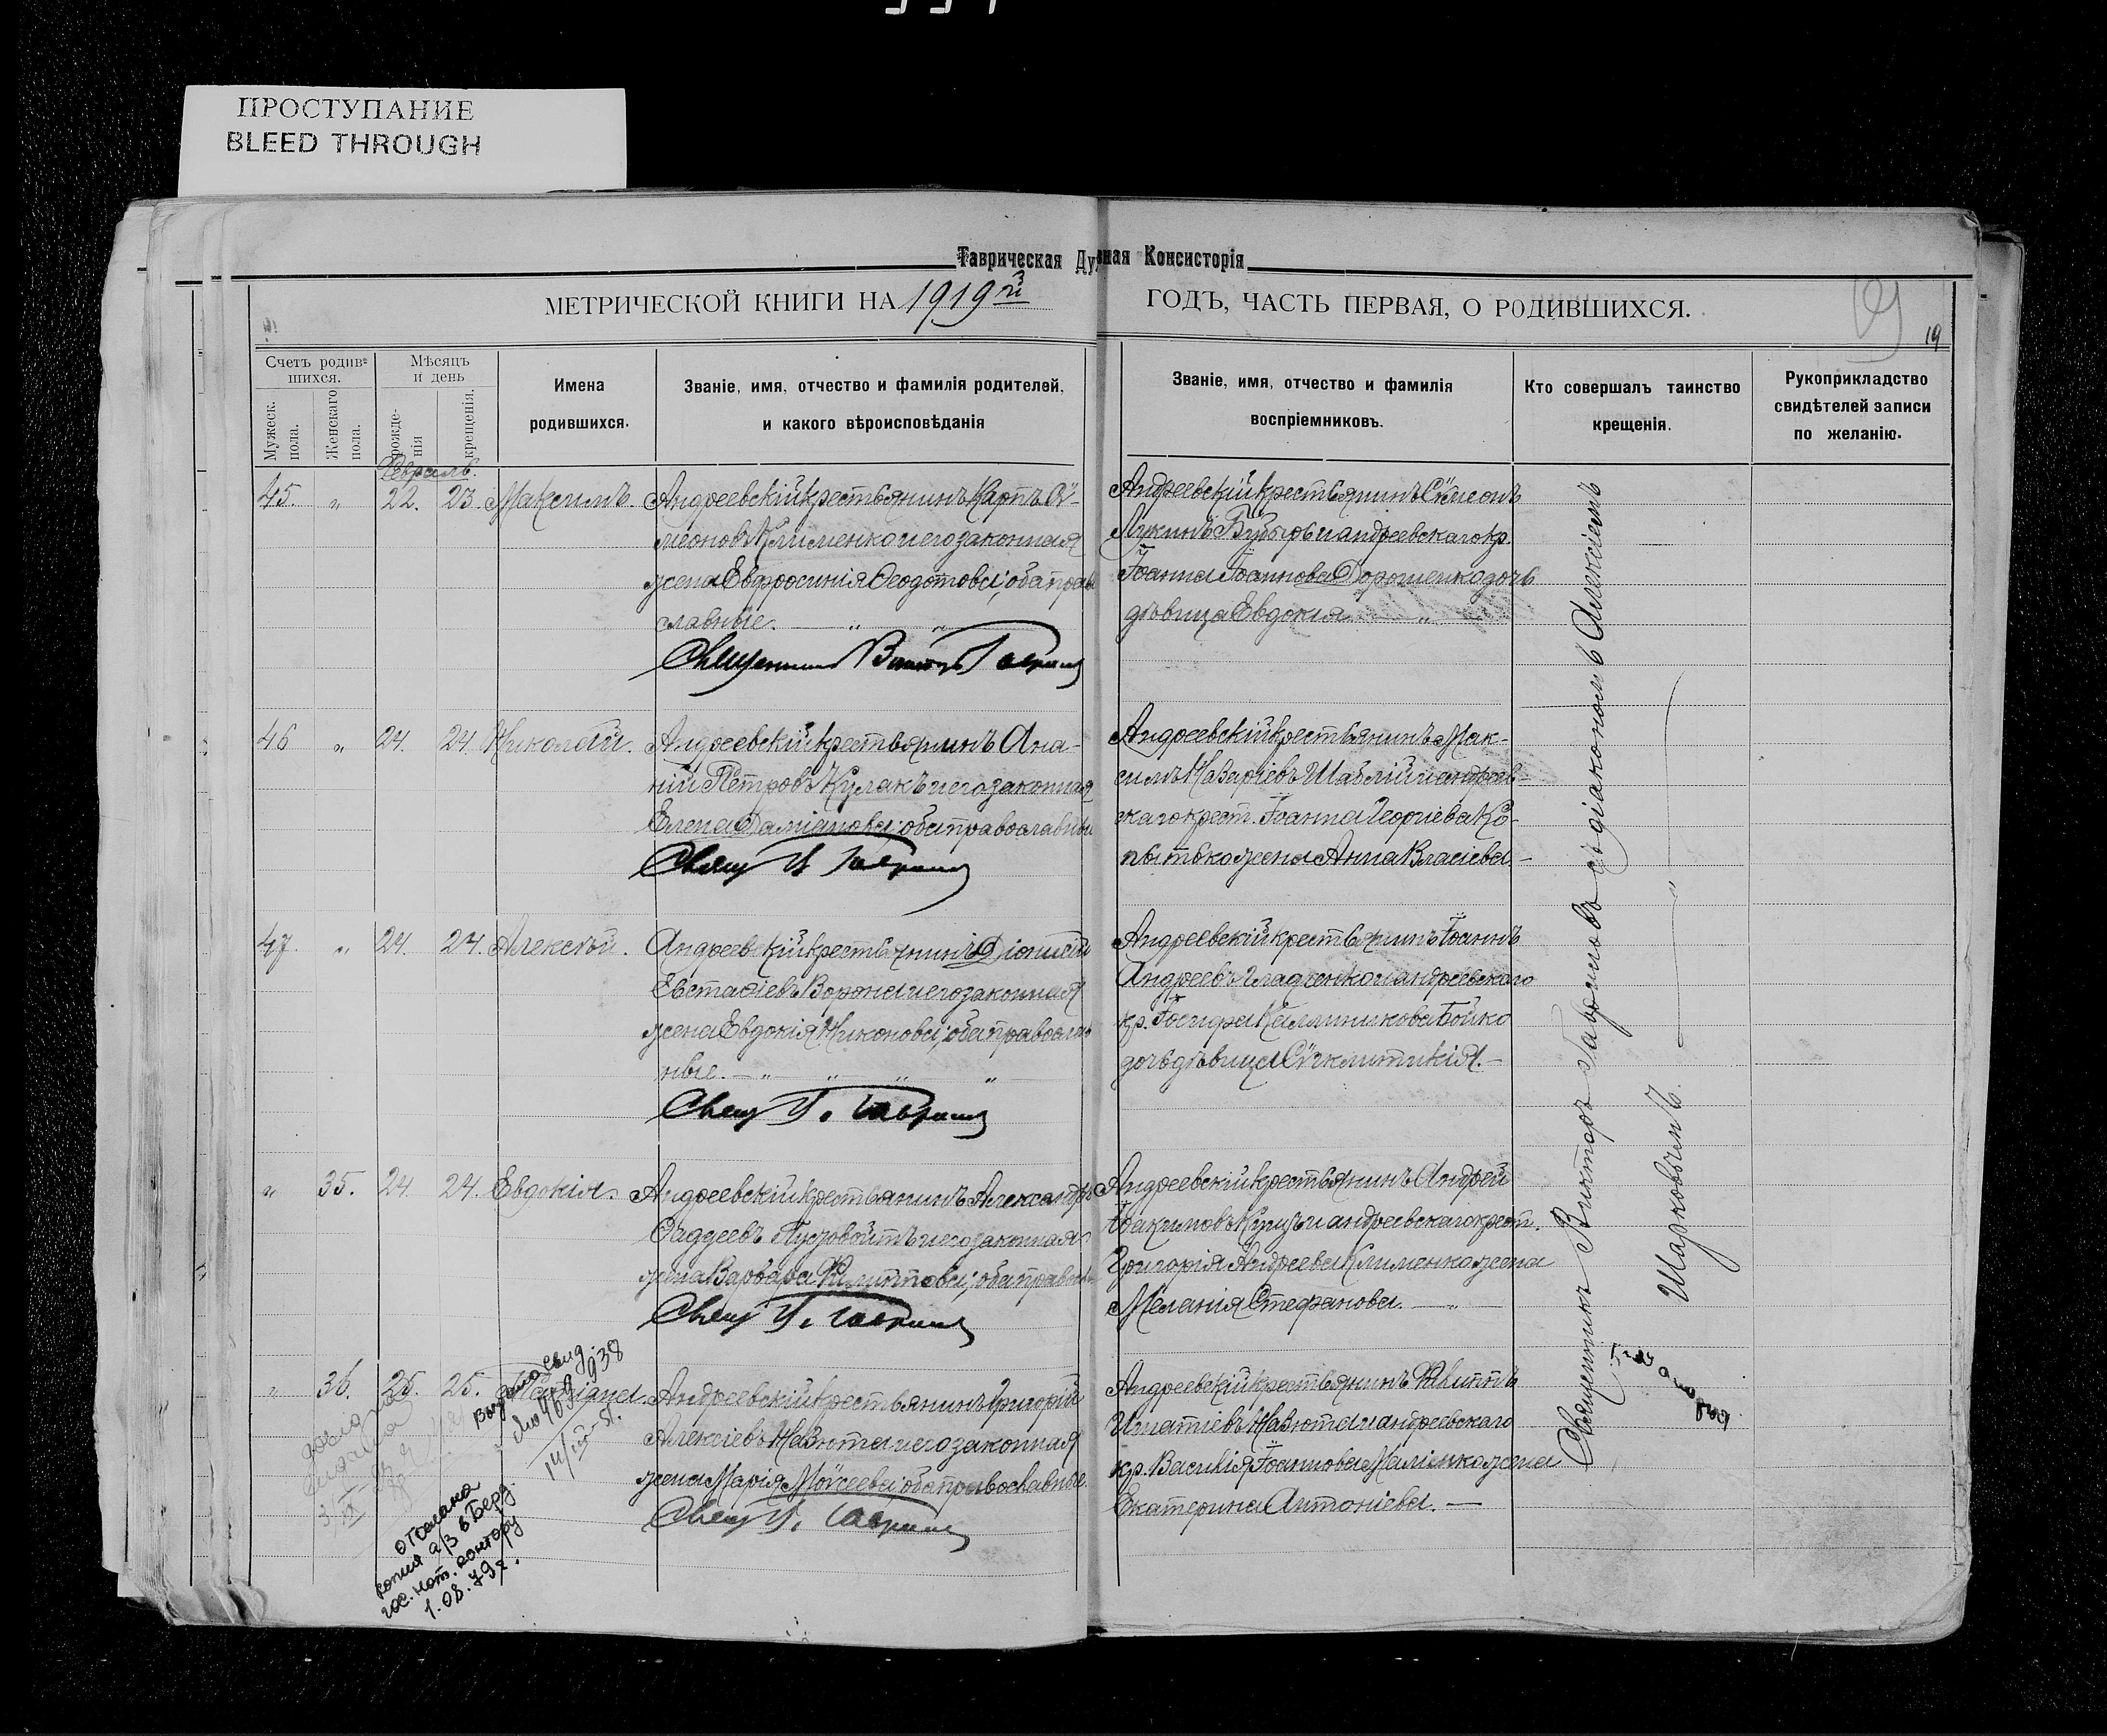 ПРОСТУПАНИЕ
BLEED THROUGH
Таврическая Духовная Консисторія
МЕТРИЧЕСКОЙ КНИГИ НА 1919й ГОДЪ, ЧАСТЬ ПЕРВАЯ, О РОДИВШИХСЯ.
19
Счетъ родив-
шихся.
Мужеск.
пола.
Женскаго
пола.
Мѣсяцъ
и день
рожде-
нія
крещенія.
Имена
родившихся.
Званіе, имя, отчество и фамилія родителей,
и какого вѣроисповѣданія
Званіе, имя, отчество и фамилія
воспріемниковъ.
Кто совершалъ таинство
крещенія.
Рукоприкладство
свидѣтелей записи
по желанію.
Февраль.
45. " 22. 23. Максимъ.
Андреевскій крестьянинъ Карпъ Сѵ-
меоновъ Клименко и его законная
жена Евфросинія Ѳеодотова; оба право
славные. " "
Священникъ Викторъ Гаврилов
Андреевскій крестьянинъ Сѵмеонъ
Лукинъ Бубырь и андреевскаго кр.
Іоанна Іоаннова Дорошенко дочь
дѣвица Евдокія "
46 " 24. 24. Николай.
Андреевскій крестьянинъ Ана-
ній Петровъ Кулакъ и его законная
Елена Даміанова; оба православны
Свящ В Гаврилов
Андреевскій крестьянинъ Мак-
симъ Назаріевъ Шаблій и андреев-
скаго крест. Іоанна Георгіева Ко-
пытько жена Анна Власіева
47. " 24. 24. Алексѣй.
Андреевскій крестьянинъ Діонисій
Евстафіевъ Ворона и его законная
жена Евдокія Никонова; оба православ
ные. " " " "
Свящ В. Гаврилов
Андреевскій крестьянинъ Іоаннъ
Андреевъ Гладченко и андреевскаго
кр. Іосифа Каллиникова Бойко
дочь дѣвица Сѵнклитикія.
" 35. 24. 24. Евдокія.
Андреевскій крестьянинъ Александръ
Ѳаддеевъ Пустовойтъ и его законная
жена Варвара Филиппова; оба правосл
Свящ В. Гаврилов
Андреевскій крестьянинъ Андрей
Іоакимовъ Куцъ и андреевскаго крест.
Григорія Андреева Клименка жена
Меланія Стефанова. "
" 36. 25. 25. Маріана.
Андреевскій крестьянинъ Григорій
Алексіевъ Мазюта и его законная
жена Марія Моѵсеева; оба православные.
Свящ В. Гаврилов
Андреевскій крестьянинъ Филиппъ
Игнатіевъ Мазюта и андреевскаго
кр. Василія Іоаннова Малимка жена
Екатерина Антоніева.
Священникъ Викторъ Гавриловъ съ діакономъ Алексіемъ
Шарковъчемъ.
Выдана свид.
938
отослана
копия а/з в Берд.
гос. нот. контору
1.08.79г.